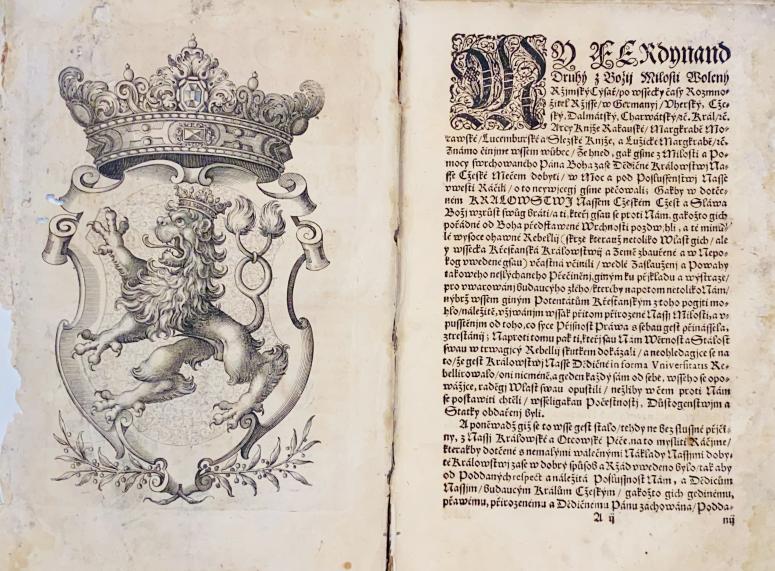 MY FERdynand
Druhý z Božij Milosti Wolený
Ržimský Cýsař/ po wssecky časy Rozmno-
žitel Ržijsse/ w Germanyi/ Vherský, Cže-
ský, Dalmátský, Charwátský/ꝛč. Král/ꝛč.
Arcy Kniže Rakauské/ Margkrabě Mo-
rawské/ Lucemburské a Slezské Kniže, a Lužické Margkrabě/ꝛč.
Známo činjme wssem wůbec/ Že hned, gak gsme z Milosti a Po-
mocy swrchowaného Pána Boha zase Dědičné Králowstwj Na-
sse Cžeské Mečem dobyli/ w Moc a pod Poslussenstwj Nasse
vwesti Ráčili/ o to neywjcegj gsme pečowali; Gakby w dotče-
ném KRALOWSTWJ Nassem Cžeském Cžest a Sláwa
Božj wzrůst swůg bráti/ a ti, kteřj gsau se proti Nám, gakožto gich
pořádné od Boha představené Wrchnosti pozdwihli, a té minu-
lé wysoce ohawné Rebellij (skrze kterauž netoliko Wlast gich/ ale
y wssecka Křesťanská Králowstwij a Země zbauřené a w Nepo-
kog vwedené gsau) včastna včinili/ wedlé Zaslaužený a Powahy
takowého neslýchaného Přečiněnj, giným ku přjkladu a weystraze/
pro vwarowánj budaucýho zlého/ kteréby napotom netoliko Nám/
nýbrž wssem giným Potentatům Křesťanským z toho pogjti mo-
hlo/ náležitě, vžjwánjm wssak přitom přirozené Nassj Milosti, a v-
pusstěnjm od toho, co syce Přjsnost Práwa s sebau gest přinássela,
ztrestáni; Naproti tomu pak ti, kteřj sau Nám Wěrnost a Stálost
swau w trwagjcý Rebellij skutkem dokázali/ a neohledagjce se na
to/ že gest Králowstwj Nasse Dědičné in forma Vniuersitatis Re-
bellirowalo/ oni nicméně, a geden každý sám od sebe, wsseho se opo-
wážjce, radĕgi Wlast swau opustili/ nežliby w čem proti Nám
se postawiti chtěli/ wsseligakau Počestnostj, Důstogenstwjm a
Statky obdařenj byli.
A poněwadž giž se to wsse gest stalo/ tehdy ne bez slussné přjči-
ny, z Nassj Králowské a Otcowské Péče, na to mysliti Ráčjme/
kterakby dotčené s nemalými walečnými Náklady Nassimi doby-
té Králowstwj zase w dobrý způsob a Ržád vwedeno bylo/ tak aby
od Poddaných respect a náležitá Poslussnost Nám, a Dědicům
Nassim/ budaucým Králům Cžeským/ gakožto gich gedinému,
prawému, přirozenému a Dědičnému Pánu zachowána/ Podda-
A ij nij